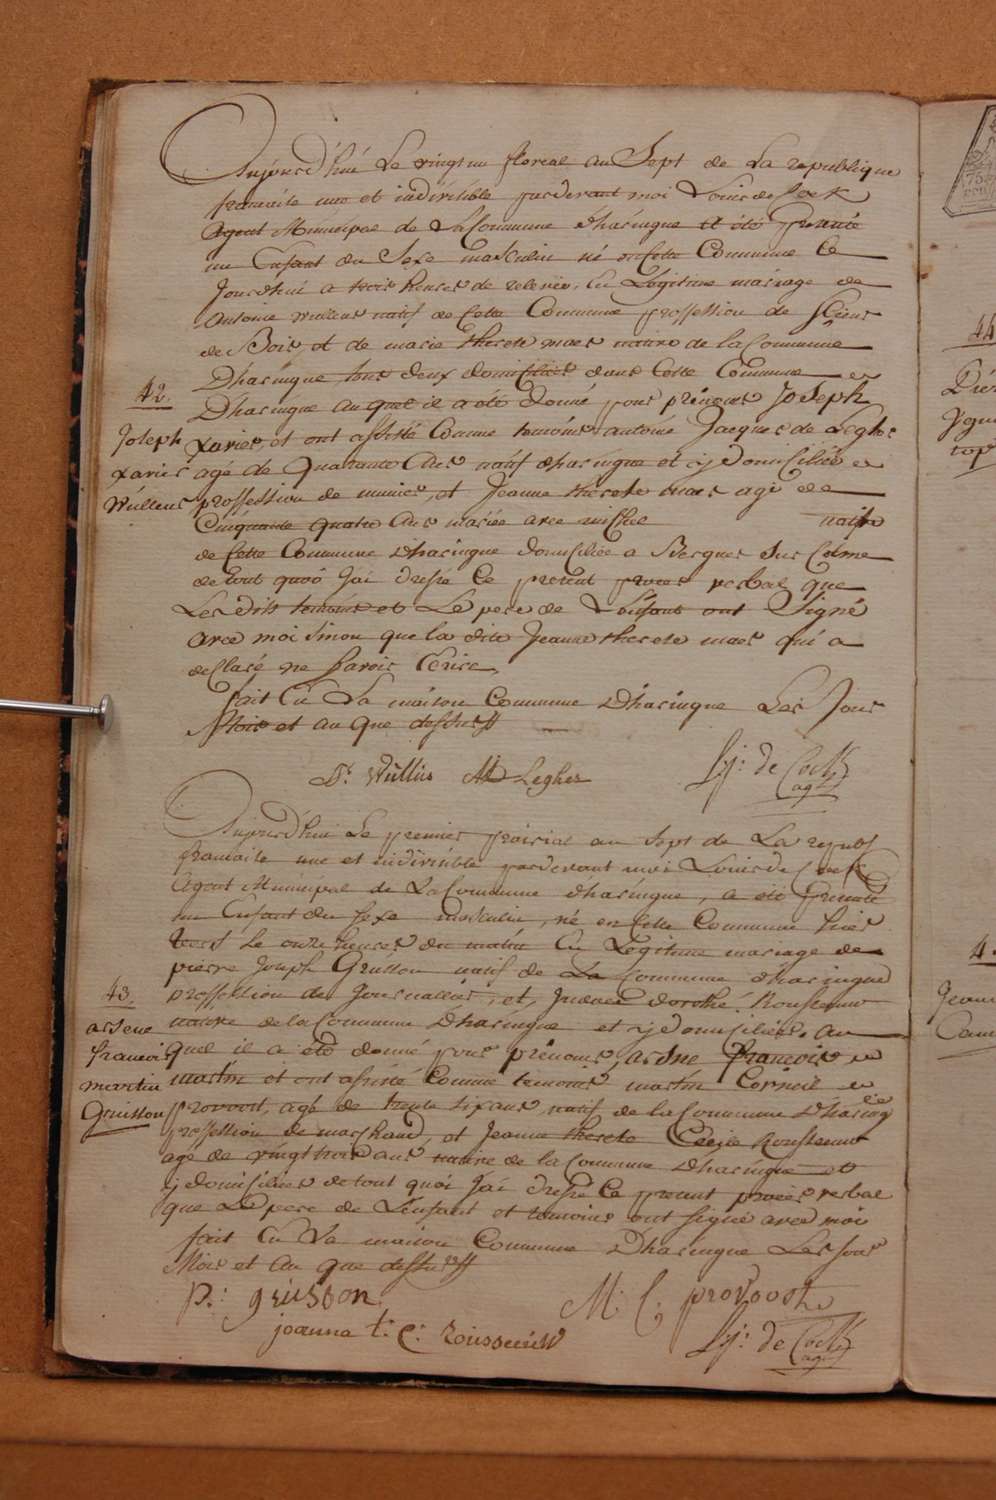 Aujourd'hui Le vingt un floreal an Sept de La republique
francaise une et indivisible pardevant moi Louis de Cock
Agent Municipal de La Commune dharingue a été presenté
un Enfant du Sexe masculin né en cette Commune Ce
Jourdhui a trois heures de relevée, En Légitime mariage de
Antoine Wullens natif de Cette Commune proffession de scieur
de Bois, et de marie therese maes native de la Commune
Dharingue tous deux domiciliés dans Cette Commune
42.
Dharingue auquel il a été donné pour prénoms Joseph
Joseph
Xavier, et ont assisté Comme temoins antoine Jacques de Legher
Xavier
agé de Quarante Ans natif dharingue et ij domicilié
Wullens
proffession de munier, et Jeanne therese maes agé de
Cinquante quatre Ans mariée avec michel native
de Cette Commune Dharingue domiciliée a Bergues Sur Colme
de tout quoi J'ai dressé Ce present proces verbal que
Les dits temoins et Le pere de L'enfant ont Signé
avec moi sinon que la dite Jeanne therese maes qui a
declaré ne savoir Ecrire
fait En La maison Commune Dharingue Les Jour
Mois et an que dessus
Wullus Legher Lj: de Cock
agt
Aujourd'hui Le premier prairial an Sept de La republ
francaise une et indivisible pardevant moi Louis de Cock
Agent Municipal de La Commune dharingue, a été presenté
un Enfant du sexe masculin, né en Cette Commune hier
vers Le onze heures du matin En Légitime mariage de
pierre Joseph Gruson natif de La Commune dharingue
43.
proffession de Journallier, et, dorothé Rousseeuw
arsene
native de la Commune Dharingue et ij domiciliés, au
francois
quel il a été donné pour prénoms, arsene francois
martin
martin et ont assisté Comme temoins martin Corneil
Gruison
provoost, agé de trente six ans, natif de la Commune Dharingue
proffession de marchand, et Jeanne therese Cecile Rousseeuw
agé de vingt trois ans native de la Commune Dharingue et
ij domiciliés de tout quoi J'ai dressé Ce present procès verbal
que Le pere de L'enfant et temoins ont signé avec moi
fait En La maison Commune Dharingue Les Jour
Mois et An que dessus
p: gruison M: C: provoost
joanna t: C: rousseeuw Lj: de Cock
agt
44